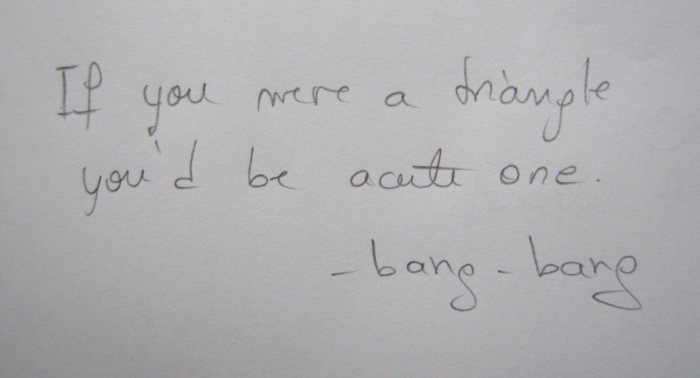 If you were a triangle
you'd be acute one.
- bang - bang